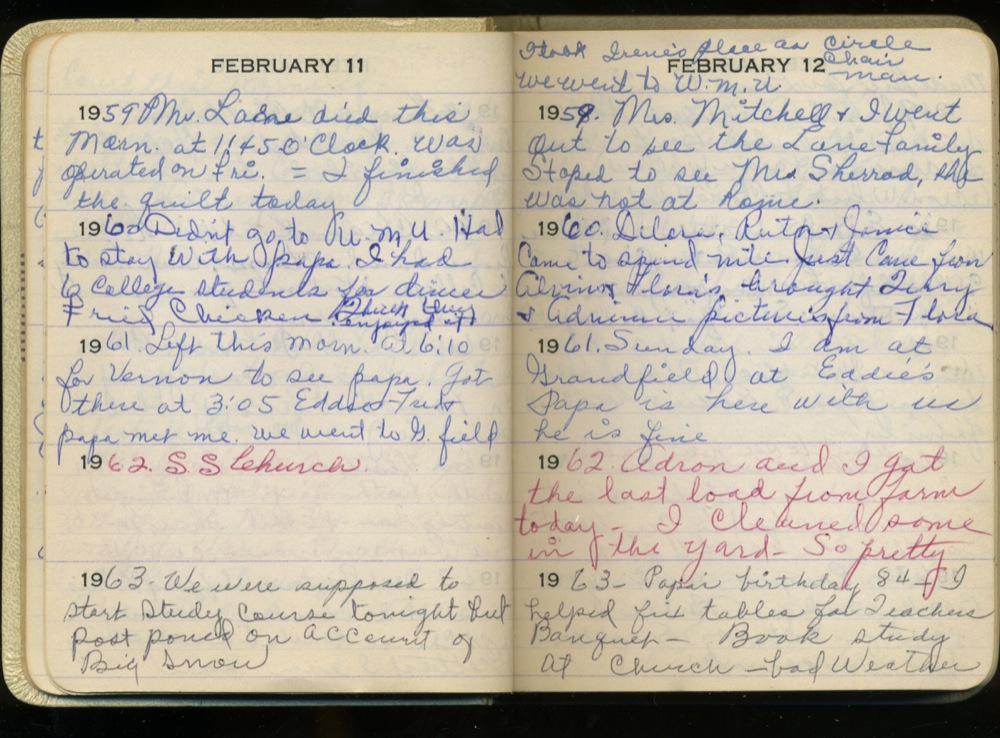 FEBRUARY 11
1959 Mr. Laine died this
Morn. at 11:45 O'Clock. was
operated on Fri. = I finished
the quilt today
1960 Didn't go to W.M.U. Had
to stay with papa. I had
6 College students for dinner
Fried Chicken Think they
enjoyed it
1961. Left this morn. at 6:10
for Vernon to see papa. Got
there at 3:05 Eddie &
papa met me. we went to G. field
1962. S S Church.
1963 - We were supposed to
start study course tonight but
post poned on account of
Big snow
I took Irene's place as circle
chair
FEBRUARY 12
man.
we went to W.M.U.
1959. Mrs. Mitchell & I went
Out to see the Lane Family
Stoped to see Mrs Sherrod, she
was not at home.
1960. Dilora, Ruth & Janice
Came to spind nite Just Came from
Alvin & Flora's brought Terry
& Adriinne pictures from Flora
1961. Sunday. I am at
Grandfield at Eddie's
Papa is here with us
he is fine
1962. Adron and I got
the last load from farm
today - I cleaned some
in the yard - So pretty
1963 - Papa's birthday 84 - I
helped fix tables for Teachers
Banquet - Book study
at Church - bad Weather